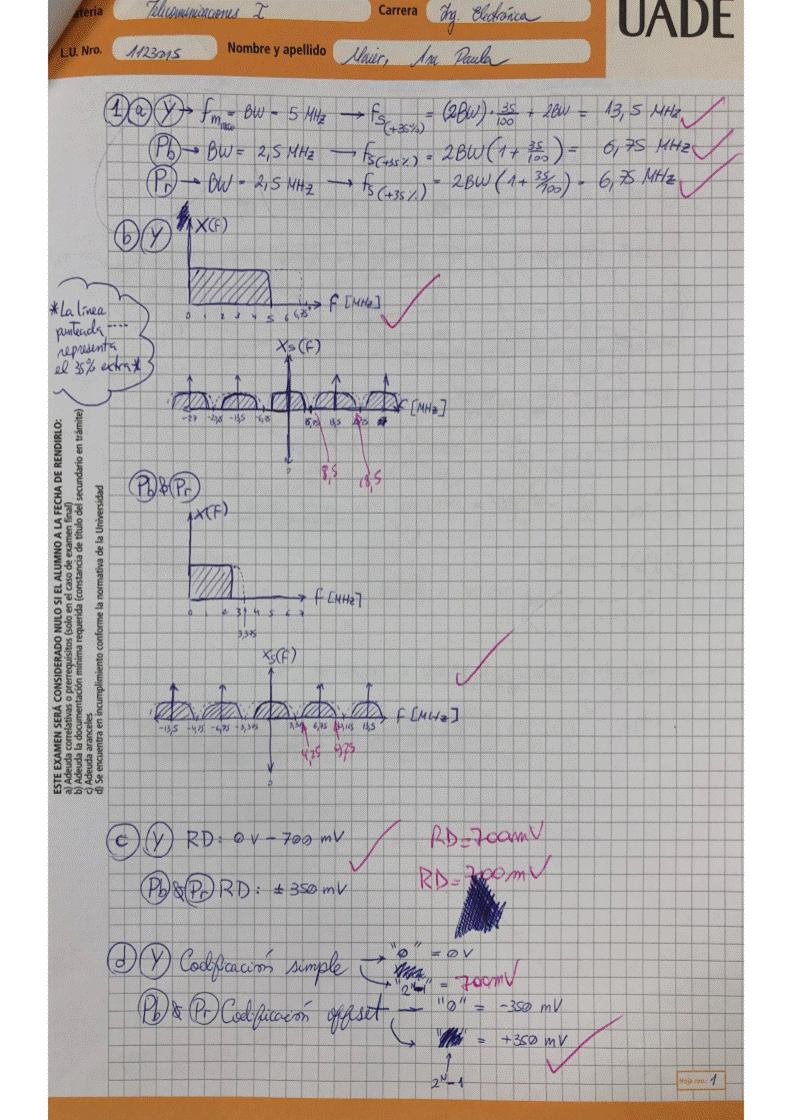 Materia Telecomunicaciones I Carrera Ing. Electrónica UADE
L.U. Nro. 1123015 Nombre y apellido Maier, Ana Paula
1 a Y → fm max = BW = 5 MHz → fs(+35%) = (2BW) · 35/100 + 2BW = 13,5 MHz
Pb → BW = 2,5 MHz → fs(+35%) = 2BW (1 + 35/100) = 6,75 MHz
Pr → BW = 2,5 MHz → fs(+35%) = 2BW (1 + 35/100) = 6,75 MHz
b Y X(F)
F [MHz]
0 1 2 3 4 5 6 6,75
* La línea
punteada ----
representa
el 35% extra *
Xs(F)
F [MHz]
-27 -13,5 -6,75 13,5
8,5 18,5
0
Pb & Pr
X(F)
F [MHz]
0 1 3 4 5 6 7
3,375
Xs(F)
F [MHz]
-13,5 -6,75 -3,375 6,75 13,5
4,25 9,25
0
c Y RD: 0V - 700 mV RD = 700mV
Pb & Pr RD: ± 350 mV RD = 700mV
d Y Codificación simple → "0" = 0V
"2^N-1" = 700mV
Pb & Pr Codificación offset → "0" = -350 mV
= +350 mV
2^N-1
Hoja nro.: 1
ESTE EXAMEN SERÁ CONSIDERADO NULO SI EL ALUMNO A LA FECHA DE RENDIRLO:
a) Adeuda correlativas o prerrequisitos (solo en el caso de examen final)
b) Adeuda la documentación mínima requerida (constancia de título del secundario en trámite)
c) Adeuda aranceles
d) Se encuentra en incumplimiento conforme la normativa de la Universidad